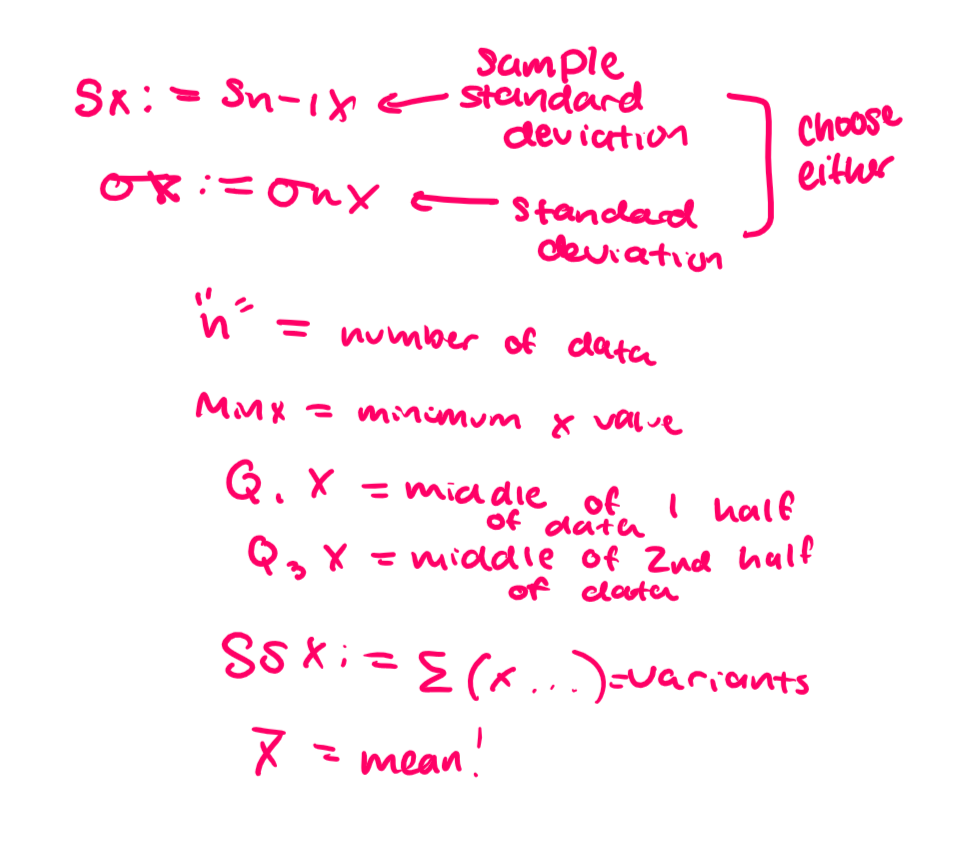 Sx := Sn-1x ← sample standard deviation
σx := σnx ← standard deviation
choose either
"n" = number of data
Minx = minimum x value
Q1 X = middle of 1 half of data
Q3 X = middle of 2nd half of data
SSX := Σ(x...)=variants
x̄ = mean!